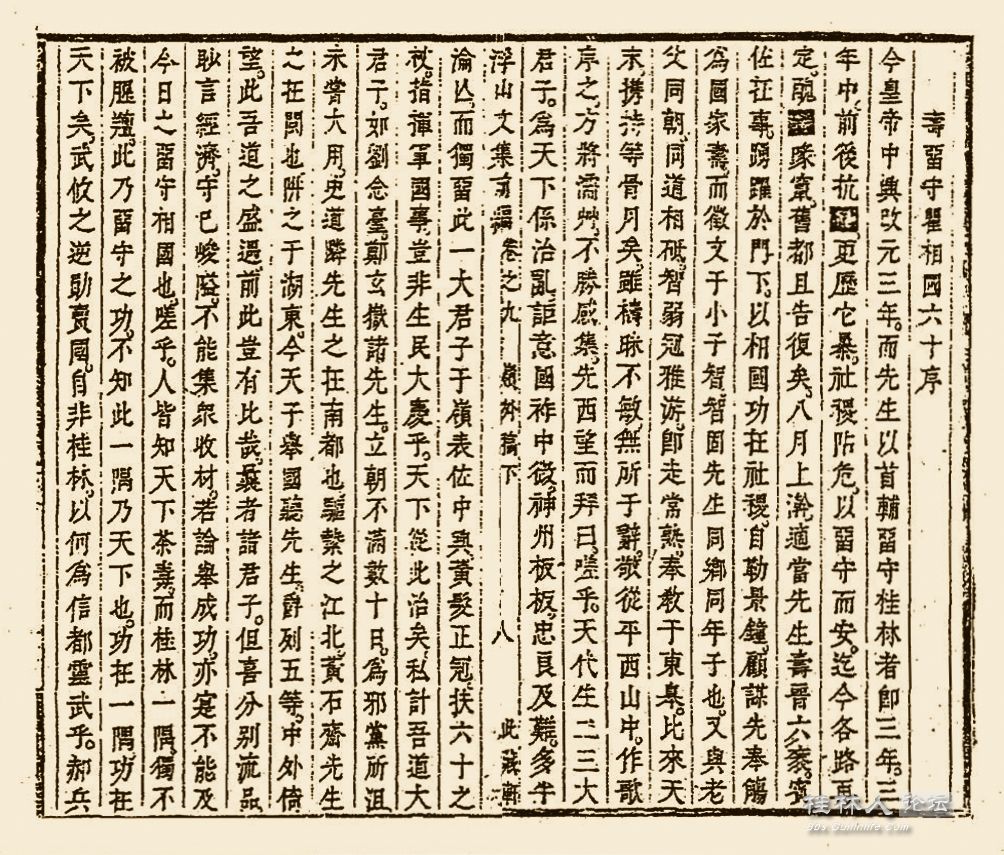 壽畱守瞿相國六十序
今皇帝中興改元三年。而先生以首輔畱守桂林者卽三年。三
年中。前後抗更歷它暴。社稷阽危。以畱守而安。迄今各路再
定。醜豕竄。舊都且告復矣。八月上瀚。適當先生壽晉六袠。賓
佐在事。踴躍於門下。以相國功在社稷。自勒景鐘。顧謀先奉觴
爲國家壽。而徵文于小子智。智固先生同鄉同年子也。又與老
父同朝。同道相砥。智弱冠雅游。卽走常熟。奉敎于東皐。比來天
末。攜持等骨月矣。雖檮昧不敏。無所于辭。敬從平西山中。作歌
序之。方將濡艸。不勝感集。先西望而拜曰。嗟乎。天代生二三大
君子。爲天下係治亂。詎意國祚中微。神州板板。忠良及難。多半
浮山文集前編 卷之九 嶺外稿下 八 此藏軒
淪亾。而獨畱此一大君子于嶺表。佐中興。黃髮正冠。扶六十之
杖。指揮軍國事。豈非生民大慶乎。天下從此治矣。私計吾道大
君子。如劉念臺。鄭玄嶽諸先生。立朝不滿數十日。爲邪黨所沮
未嘗大用。史道鄰先生之在南都也。驅縶之江北。黃石齋先生
之在閩也。阱之于湖東。今天子舉國聽先生。爵列五等。中外倚
望。此吾道之盛遇。前此豈有比哉。曩者諸君子。但喜分別流品
眇言經濟。守已峻隘。不能集衆收材。若論舉成功。亦寔不能及
今日之畱守相國也。嗟乎。人皆知天下荼毒。而桂林一隅。獨不
被腥羶。此乃畱守之功。不知此一隅乃天下也。功在一隅。功在
天下矣。武攸之逆劻賣國。自非桂林。以何爲信都靈武乎。郝兵
桂林人论坛
bbs.guilinlife.com